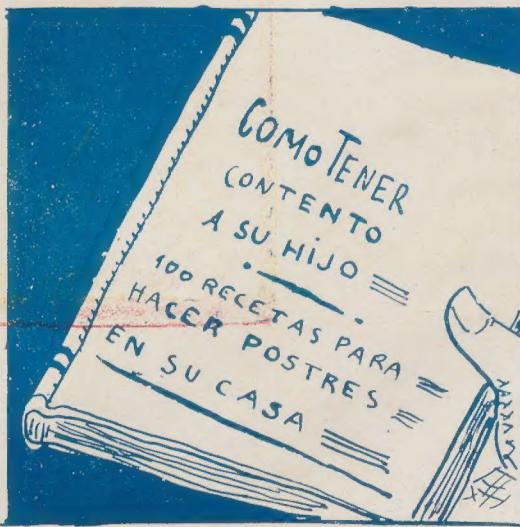 COMO TENER
CONTENTO
A SU HIJO
100 RECETAS PARA
HACER POSTRES
EN SU CASA